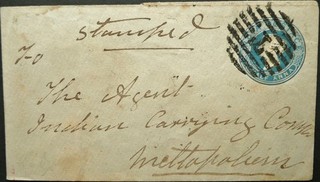 Stamped
To
The Agent
Indian Carrying Comp
Mettapollium
ANNA